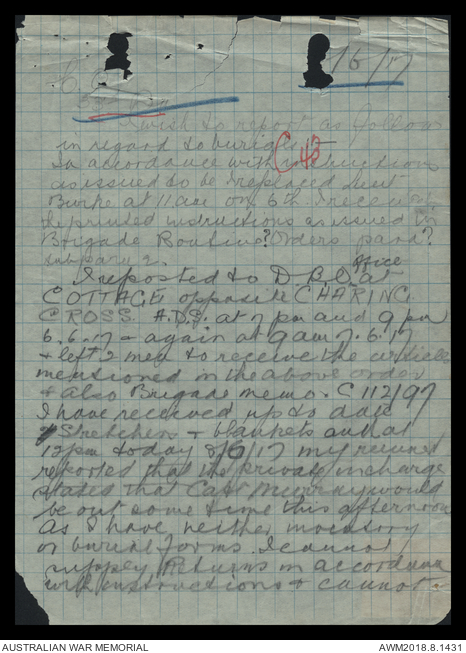 /6/17
I wish to report as follow
in regard to burials
C 43
In accordance with instructions
as issued to be I replaced Lieut
Burke at 11 am on 6th I received
reprinted instructions as issued in
Brigade Routine? Orders para?
sub para 2.
I reported to D.B.O. Office at
COTTAGE opposite CHARING
CROSS. A.D.S. at 7 pm and 9 pm
6.6.17 - again at 9 am 7.6.17
+ left 2 men to receive the articles
mentioned in the above order
+ also Brigade memo. C 112/97
I have received up to date
Stretchers + blankets and at
12 pm today 8/6/17 my
reported that the private in charge
states that Capt Murray would
be out some time this afternoon
As I have neither
or burial forms. I cannot
supply Returns in accordance
with instructions + cannot.
AUSTRALIAN WAR MEMORIAL
AWM2018.8.1431